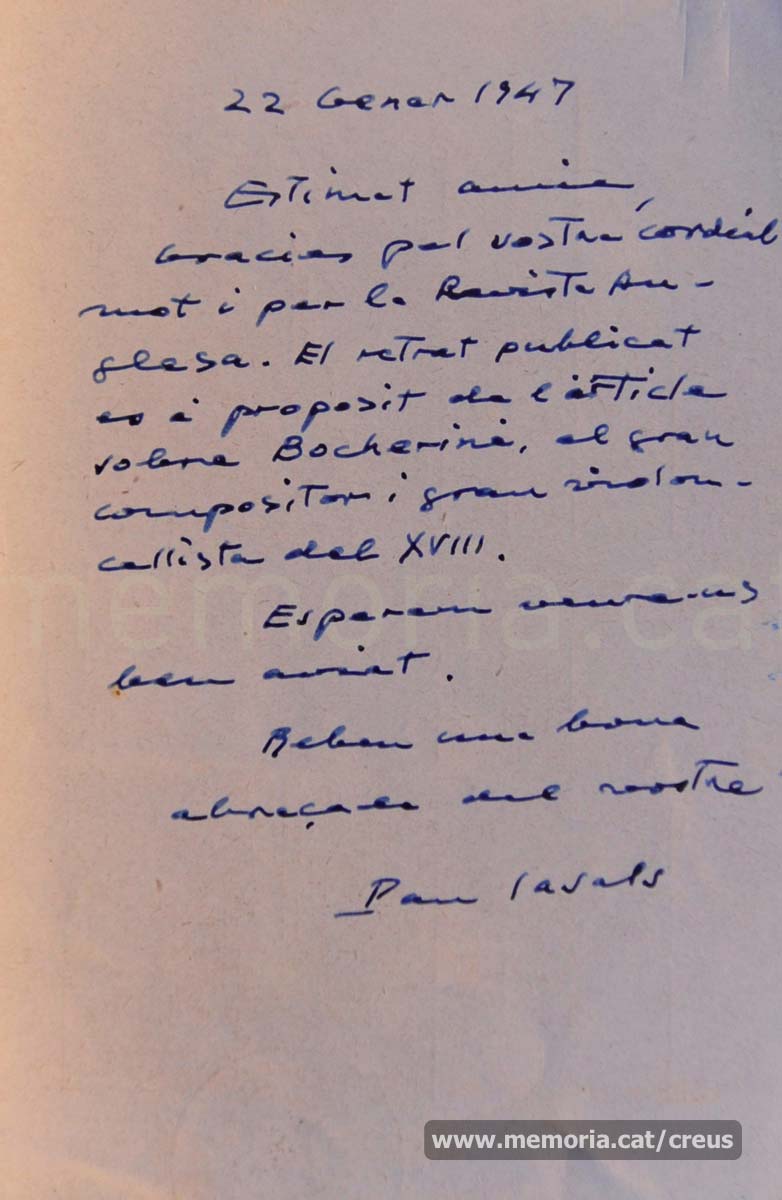 22 Gener 1947
Estimat amic,
Gracies pel vostre cordial
mot i per la Revista An-
glesa. El retrat publicat
es à proposit de l'article
sobre Bocherini, el gran
compositor i gran violon-
cellista del XVIII.
Esperem veure-us
ben aviat.
Rebeu una bona
abraçada del vostre
Pau Casals
memoria.cat
www.memoria.cat/creus